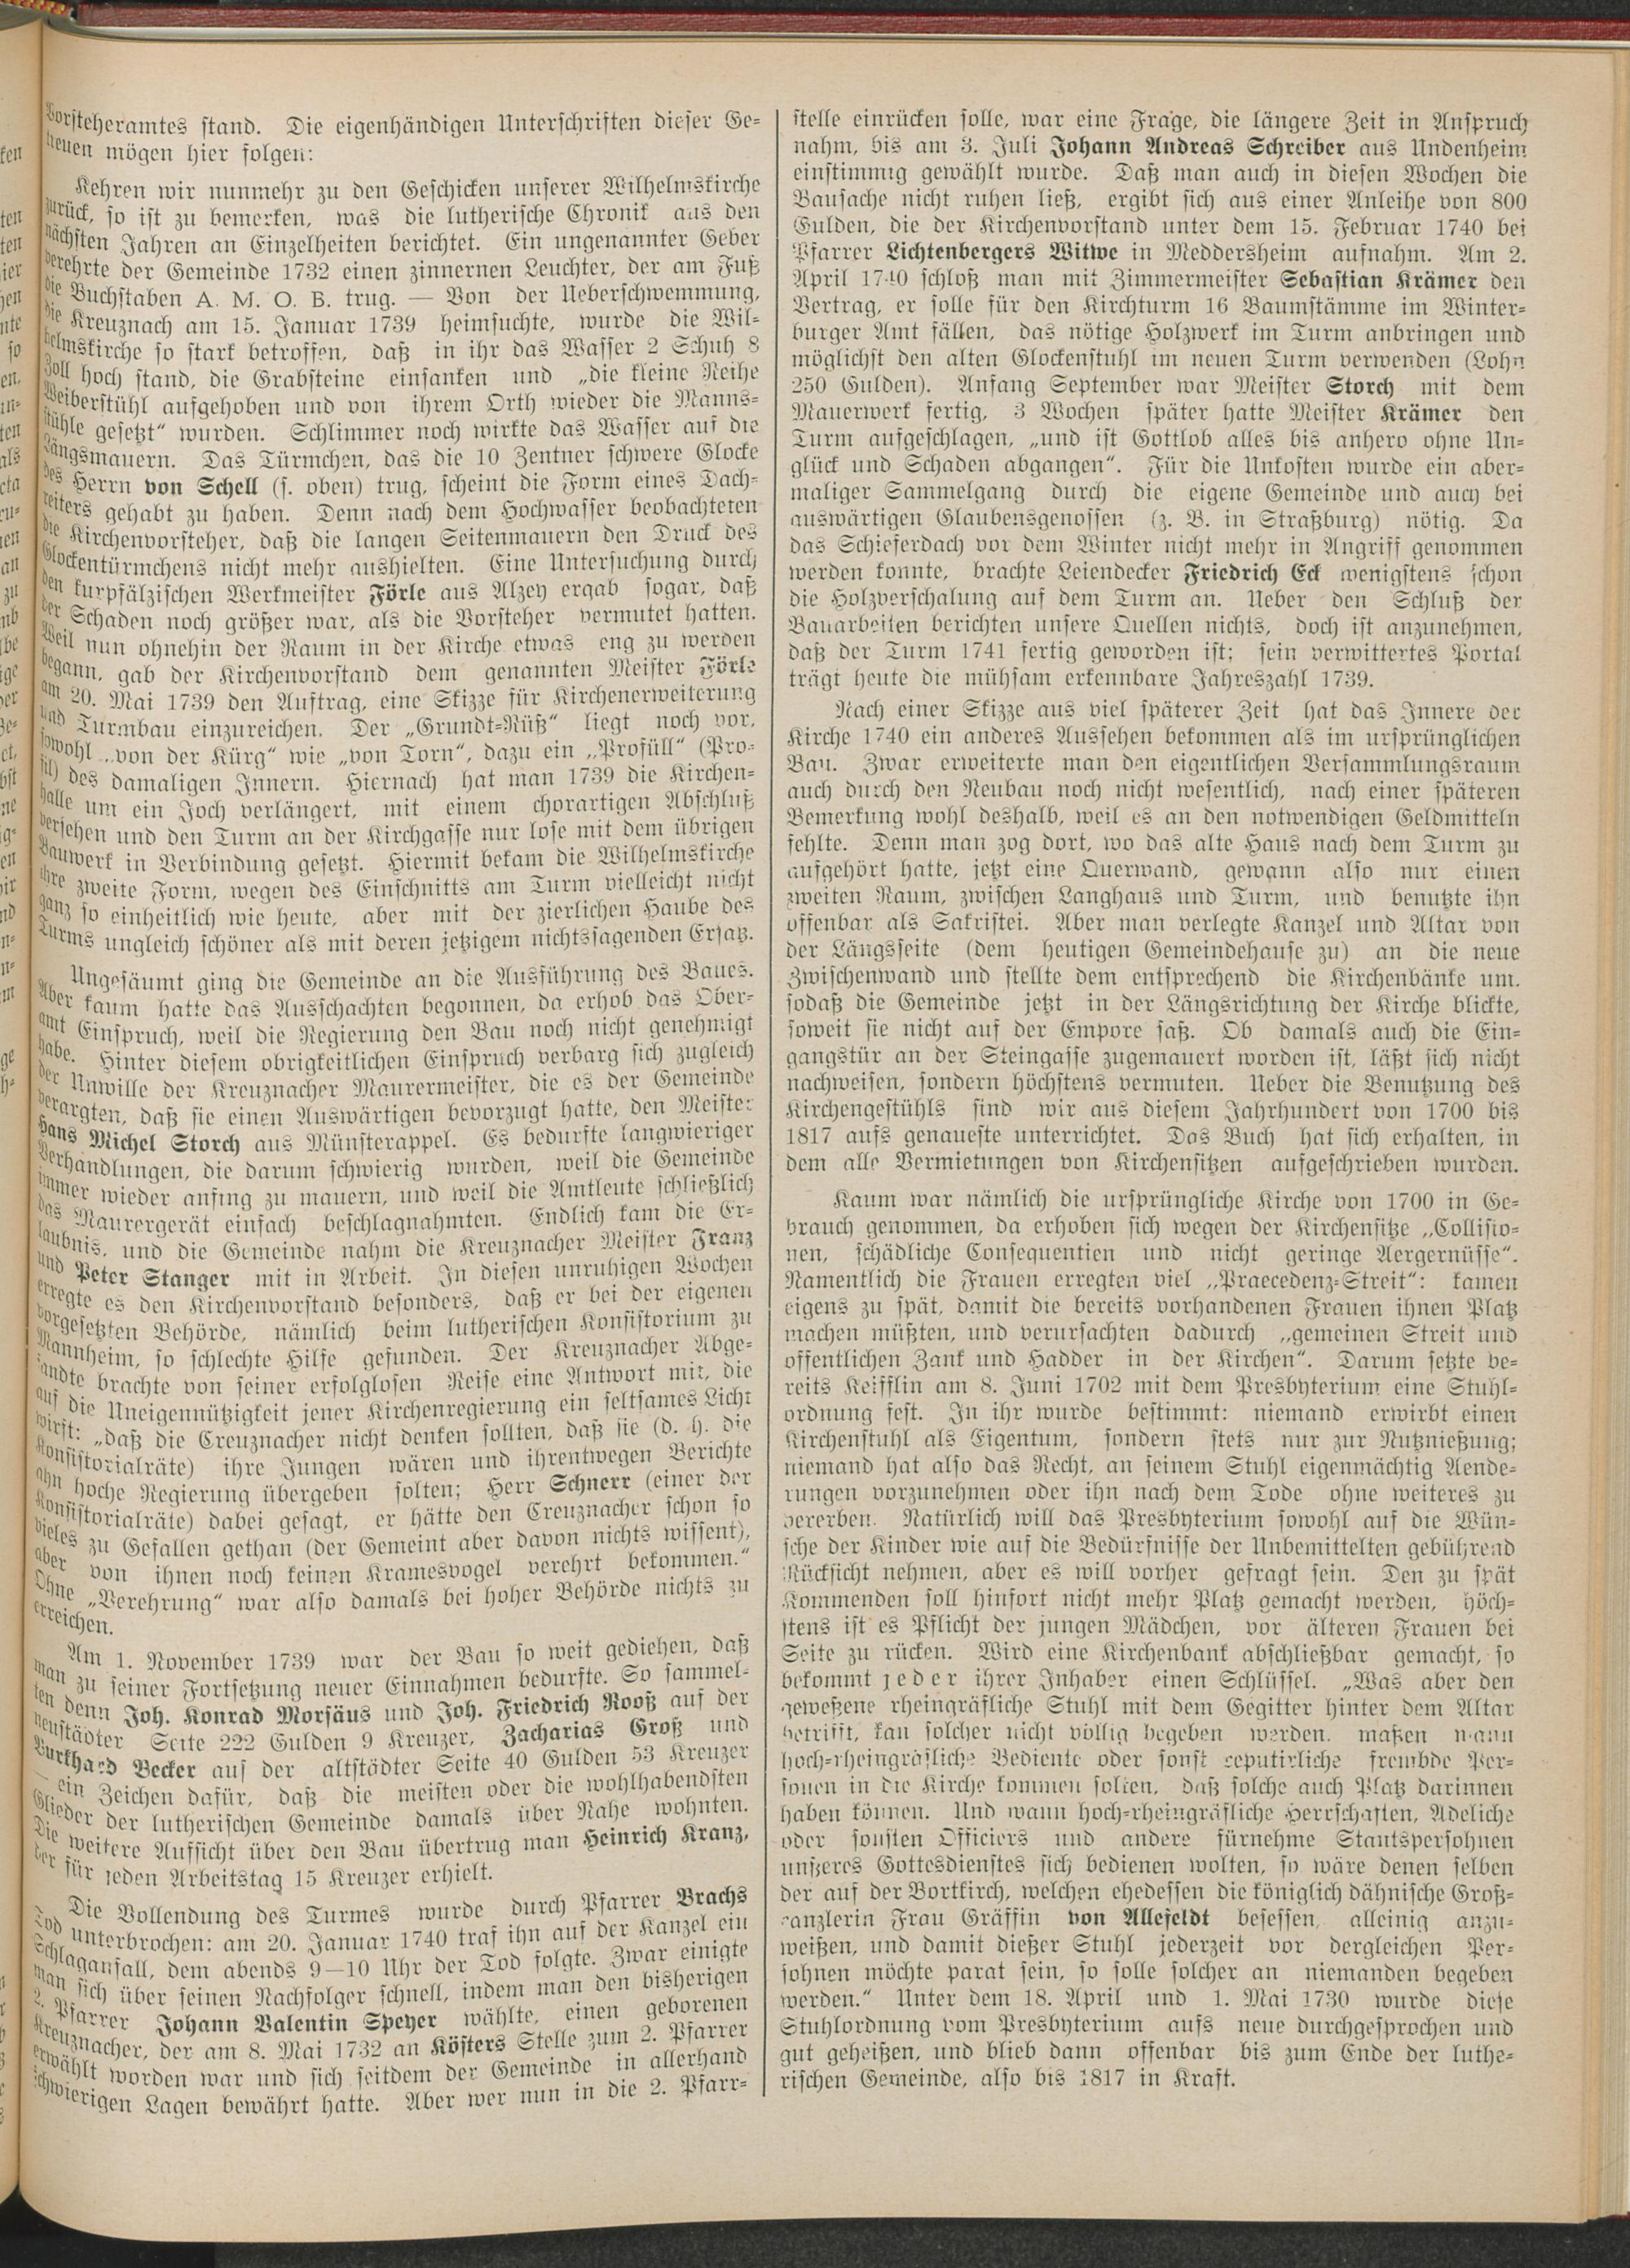 Vorsteheramtes stand. Die eigenhändigen Unterschriften dieser Ge-
treuen mögen hier folgen:
Kehren wir nunmehr zu den Geschicken unserer Wilhelmskirche
zurück, so ist zu bemerken, was die lutherische Chronik aus den
nächsten Jahren an Einzelheiten berichtet. Ein ungenannter Geber
verehrte der Gemeinde 1732 einen zinnernen Leuchter, der am Fuß
die Buchstaben A. M. O. B. trug. — Von der Ueberschwemmung,
die Kreuznach am 15. Januar 1739 heimsuchte, wurde die Wil-
helmskirche so stark betroffen, daß in ihr das Wasser 2 Schuh 8
Zoll hoch stand, die Grabsteine einsanken und „die kleine Reihe
Weiberstühl aufgehoben und von ihrem Orth wieder die Manns-
stühle gesetzt“ wurden. Schlimmer noch wirkte das Wasser auf die
Längsmauern. Das Türmchen, das die 10 Zentner schwere Glocke
des Herrn von Schell (s. oben) trug, scheint die Form eines Dach-
reiters gehabt zu haben. Denn nach dem Hochwasser beobachteten
die Kirchenvorsteher, daß die langen Seitenmauern den Druck des
Glockentürmchens nicht mehr aushielten. Eine Untersuchung durch
den kurpfälzischen Werkmeister Förle aus Alzey ergab sogar, daß
der Schaden noch größer war, als die Vorsteher vermutet hatten.
Weil nun ohnehin der Raum in der Kirche etwas eng zu werden
begann, gab der Kirchenvorstand dem genannten Meister Förle
am 20. Mai 1739 den Auftrag, eine Skizze für Kirchenerweiterung
und Turmbau einzureichen. Der „Grundt-Rüß“ liegt noch vor,
sowohl „von der Kürg“ wie „von Torn“, dazu ein „Profüll“ (Pro-
fil) des damaligen Innern. Hiernach hat man 1739 die Kirchen-
halle um ein Joch verlängert, mit einem chorartigen Abschluß
versehen und den Turm an der Kirchgasse nur lose mit dem übrigen
Bauwerk in Verbindung gesetzt. Hiermit bekam die Wilhelmskirche
ihre zweite Form, wegen des Einschnitts am Turm vielleicht nicht
ganz so einheitlich wie heute, aber mit der zierlichen Haube des
Turms ungleich schöner als mit deren jetzigem nichtssagenden Ersatz.
Ungesäumt ging die Gemeinde an die Ausführung des Baues.
Aber kaum hatte das Ausschachten begonnen, da erhob das Ober-
amt Einspruch, weil die Regierung den Bau noch nicht genehmigt
habe. Hinter diesem obrigkeitlichen Einspruch verbarg sich zugleich
der Unwille der Kreuznacher Maurermeister, die es der Gemeinde
verargten, daß sie einen Auswärtigen bevorzugt hatte, den Meister
Hans Michel Storch aus Münsterappel. Es bedurfte langwieriger
Verhandlungen, die darum schwierig wurden, weil die Gemeinde
immer wieder anfing zu mauern, und weil die Amtleute schließlich
das Maurergerät einfach beschlagnahmten. Endlich kam die Er-
laubnis, und die Gemeinde nahm die Kreuznacher Meister Franz
und Peter Stanger mit in Arbeit. In diesen unruhigen Wochen
erregte es den Kirchenvorstand besonders, daß er bei der eigenen
vorgesetzten Behörde, nämlich beim lutherischen Konsistorium zu
Mannheim, so schlechte Hilfe gefunden. Der Kreuznacher Abge-
sandte brachte von seiner erfolglosen Reise eine Antwort mit, die
auf die Uneigennützigkeit jener Kirchenregierung ein seltsames Licht
wirft: „daß die Creuznacher nicht denken sollten, daß sie (d. h. die
Konsistorialräte) ihre Jungen wären und ihrentwegen Berichte
ahn hoche Regierung übergeben solten; Herr Schnerr (einer der
Konsistorialräte) dabei gesagt, er hätte den Creuznacher schon so
vieles zu Gefallen gethan (der Gemeint aber davon nichts wissent),
aber von ihnen noch keinen Kramesvogel verehrt bekommen.“
Ohne „Verehrung“ war also damals bei hoher Behörde nichts zu
erreichen.
Am 1. November 1739 war der Bau so weit gediehen, daß
man zu seiner Fortsetzung neuer Einnahmen bedurfte. So sammel-
ten denn Joh. Konrad Morsäus und Joh. Friedrich Rooß auf der
neustädter Seite 222 Gulden 9 Kreuzer, Zacharias Groß und
Burkhard Becker auf der altstädter Seite 40 Gulden 53 Kreuzer
— ein Zeichen dafür, daß die meisten oder die wohlhabendsten
Glieder der lutherischen Gemeinde damals über Nahe wohnten.
Die weitere Aufsicht über den Bau übertrug man Heinrich Kranz,
der für jeden Arbeitstag 15 Kreuzer erhielt.
Die Vollendung des Turmes wurde durch Pfarrer Brachs
Tod unterbrochen: am 20. Januar 1740 traf ihn auf der Kanzel ein
Schlaganfall, dem abends 9—10 Uhr der Tod folgte. Zwar einigte
man sich über seinen Nachfolger schnell, indem man den bisherigen
2. Pfarrer Johann Valentin Speyer wählte, einen geborenen
Kreuznacher, der am 8. Mai 1732 an Kösters Stelle zum 2. Pfarrer
erwählt worden war und sich seitdem der Gemeinde in allerhand
schwierigen Lagen bewährt hatte. Aber wer nun in die 2. Pfarr-
stelle einrücken solle, war eine Frage, die längere Zeit in Anspruch
nahm, bis am 3. Juli Johann Andreas Schreiber aus Undenheim
einstimmig gewählt wurde. Daß man auch in diesen Wochen die
Bausache nicht ruhen ließ, ergibt sich aus einer Anleihe von 800
Gulden, die der Kirchenvorstand unter dem 15. Februar 1740 bei
Pfarrer Lichtenbergers Witwe in Meddersheim aufnahm. Am 2.
April 1740 schloß man mit Zimmermeister Sebastian Krämer den
Vertrag, er solle für den Kirchturm 16 Baumstämme im Winter-
burger Amt fällen, das nötige Holzwerk im Turm anbringen und
möglichst den alten Glockenstuhl im neuen Turm verwenden (Lohn
250 Gulden). Anfang September war Meister Storch mit dem
Mauerwerk fertig, 3 Wochen später hatte Meister Krämer den
Turm aufgeschlagen, „und ist Gottlob alles bis anhero ohne Un-
glück und Schaden abgangen“. Für die Unkosten wurde ein aber-
maliger Sammelgang durch die eigene Gemeinde und auch bei
auswärtigen Glaubensgenossen (z. B. in Straßburg) nötig. Da
das Schieferdach vor dem Winter nicht mehr in Angriff genommen
werden konnte, brachte Leiendecker Friedrich Eck wenigstens schon
die Holzverschalung auf dem Turm an. Ueber den Schluß der
Bauarbeiten berichten unsere Quellen nichts, doch ist anzunehmen,
daß der Turm 1741 fertig geworden ist; sein verwittertes Portal
trägt heute die mühsam erkennbare Jahreszahl 1739.
Nach einer Skizze aus viel späterer Zeit hat das Innere der
Kirche 1740 ein anderes Aussehen bekommen als im ursprünglichen
Bau. Zwar erweiterte man den eigentlichen Versammlungsraum
auch durch den Neubau noch nicht wesentlich, nach einer späteren
Bemerkung wohl deshalb, weil es an den notwendigen Geldmitteln
fehlte. Denn man zog dort, wo das alte Haus nach dem Turm zu
aufgehört hatte, jetzt eine Querwand, gewann also nur einen
zweiten Raum, zwischen Langhaus und Turm, und benutzte ihn
offenbar als Sakristei. Aber man verlegte Kanzel und Altar von
der Längsseite (dem heutigen Gemeindehause zu) an die neue
Zwischenwand und stellte dem entsprechend die Kirchenbänke um.
sodaß die Gemeinde jetzt in der Längsrichtung der Kirche blickte,
soweit sie nicht auf der Empore saß. Ob damals auch die Ein-
gangstür an der Steingasse zugemauert worden ist, läßt sich nicht
nachweisen, sondern höchstens vermuten. Ueber die Benutzung des
Kirchengestühls sind wir aus diesem Jahrhundert von 1700 bis
1817 aufs genaueste unterrichtet. Das Buch hat sich erhalten, in
dem alle Vermietungen von Kirchensitzen aufgeschrieben wurden.
Kaum war nämlich die ursprüngliche Kirche von 1700 in Ge-
brauch genommen, da erhoben sich wegen der Kirchensitze „Collisio-
nen, schädliche Consequentien und nicht geringe Aergernüsse“.
Namentlich die Frauen erregten viel „Praecedenz-Streit“: kamen
eigens zu spät, damit die bereits vorhandenen Frauen ihnen Platz
machen müßten, und verursachten dadurch „gemeinen Streit und
offentlichen Zank und Hadder in der Kirchen“. Darum setzte be-
reits Keifflin am 8. Juni 1702 mit dem Presbyterium eine Stuhl-
ordnung fest. In ihr wurde bestimmt: niemand erwirbt einen
Kirchenstuhl als Eigentum, sondern stets nur zur Nutznießung;
niemand hat also das Recht, an seinem Stuhl eigenmächtig Aende-
rungen vorzunehmen oder ihn nach dem Tode ohne weiteres zu
vererben. Natürlich will das Presbyterium sowohl auf die Wün-
sche der Kinder wie auf die Bedürfnisse der Unbemittelten gebührend
Rücksicht nehmen, aber es will vorher gefragt sein. Den zu spät
Kommenden soll hinfort nicht mehr Platz gemacht werden, höch-
stens ist es Pflicht der jungen Mädchen, vor älteren Frauen bei
Seite zu rücken. Wird eine Kirchenbank abschließbar gemacht, so
bekommt jeder ihrer Inhaber einen Schlüssel. „Was aber den
geweßene rheingräfliche Stuhl mit dem Gegitter hinter dem Altar
betrifft, kan solcher nicht völlig begeben werden, maßen wann
hoch-rheingräfliche Bediente oder sonst reputirliche frembde Per-
sonen in die Kirche kommen solten, daß solche auch Platz darinnen
haben können. Und wann hoch-rheingräfliche Herrschaften, Adeliche
oder sonsten Officiers und andere fürnehme Stantspersohnen
unßeres Gottesdienstes sich bedienen wolten, so wäre denen selben
der auf der Bortkirch, welchen ehedessen die königlich dähnische Groß-
canzlerin Frau Gräffin von Allefeldt besessen, alleinig anzu-
weißen, und damit dießer Stuhl jederzeit vor dergleichen Per-
sohnen möchte parat sein, so solle solcher an niemanden begeben
werden.“ Unter dem 18. April und 1. Mai 1730 wurde diese
Stuhlordnung vom Presbyterium aufs neue durchgesprochen und
gut geheißen, und blieb dann offenbar bis zum Ende der luthe-
rischen Gemeinde, also bis 1817 in Kraft.